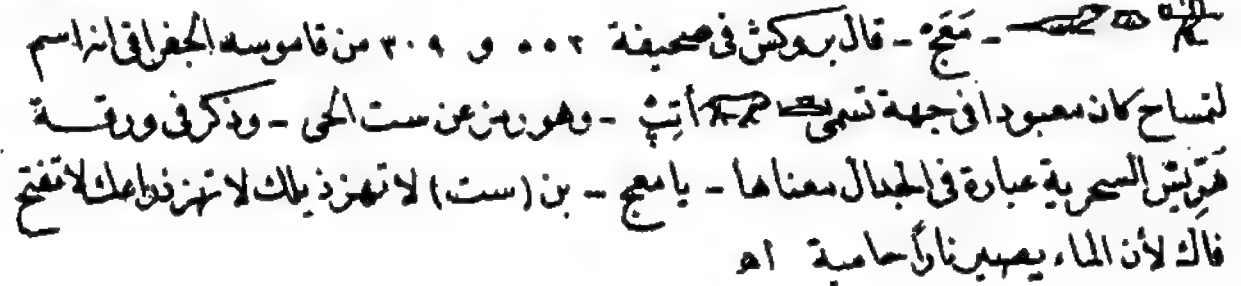 ـ مَعَجْ ـ قال بروكش فى صحيفة ٥٥٢ و ٣٠٩ من قاموسه الجغرافى انه اسم
لتمساح كان معبودا فى جهة تسمى أَتِبْ ـ وهو رمز عن ست الحى ـ وذكر فى ورقـــة
هَرِّيْس السحرية عبارة فى الجدال معناها ـ يا معج ـ بن (ست) لا تهز ذيلك لا تهز ذراعك لا تفتح
فاك لأن الماء يصير ناراً حامية اه